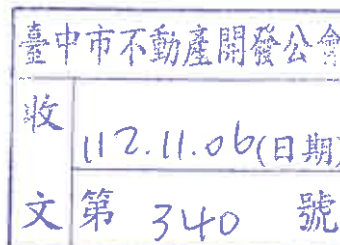 臺中市不動產開發公會
收
112.11.06(日期)
文 第 340 號